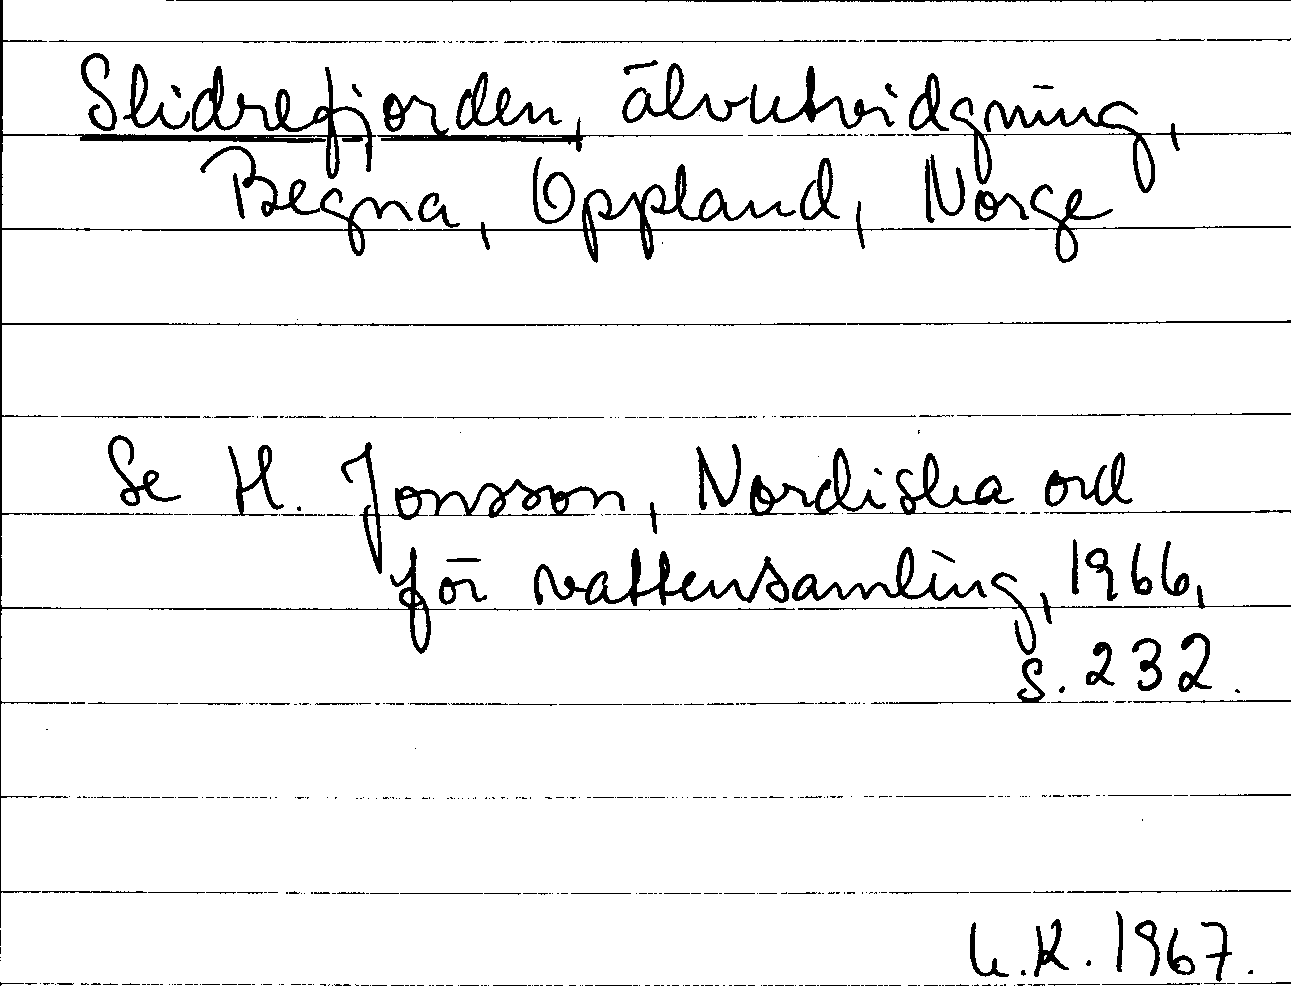 Slidrefjorden, älvutvidgning,
Begna, Oppland, Norge
Se H. Jonsson, Nordiska ord
för vattensamling, 1966,
s. 232.
U.K. 1967.